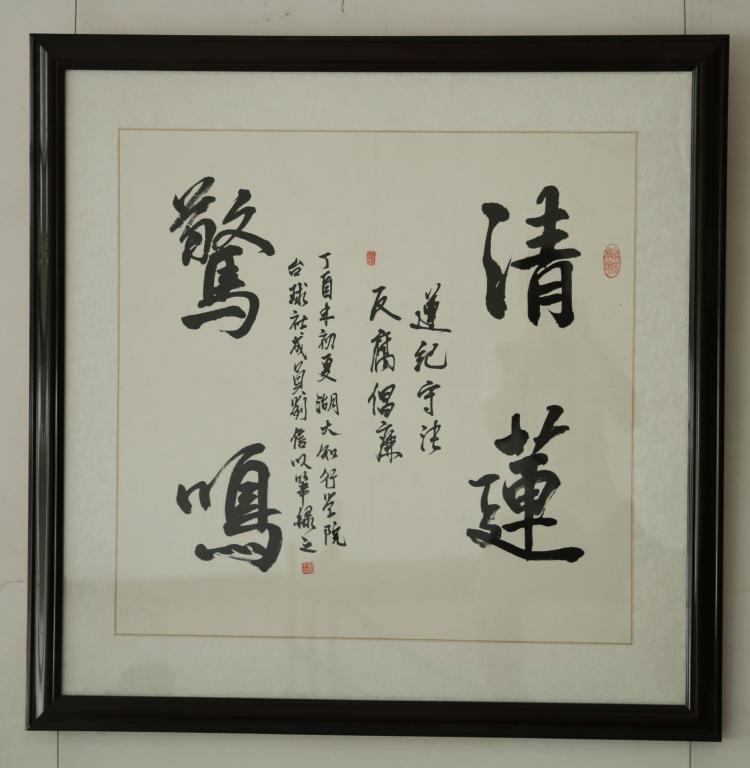 清蓮
遵紀守法
反腐倡廉
驚鳴
丁酉年初夏湖大知行学院
台球社成員劉信以筆録之